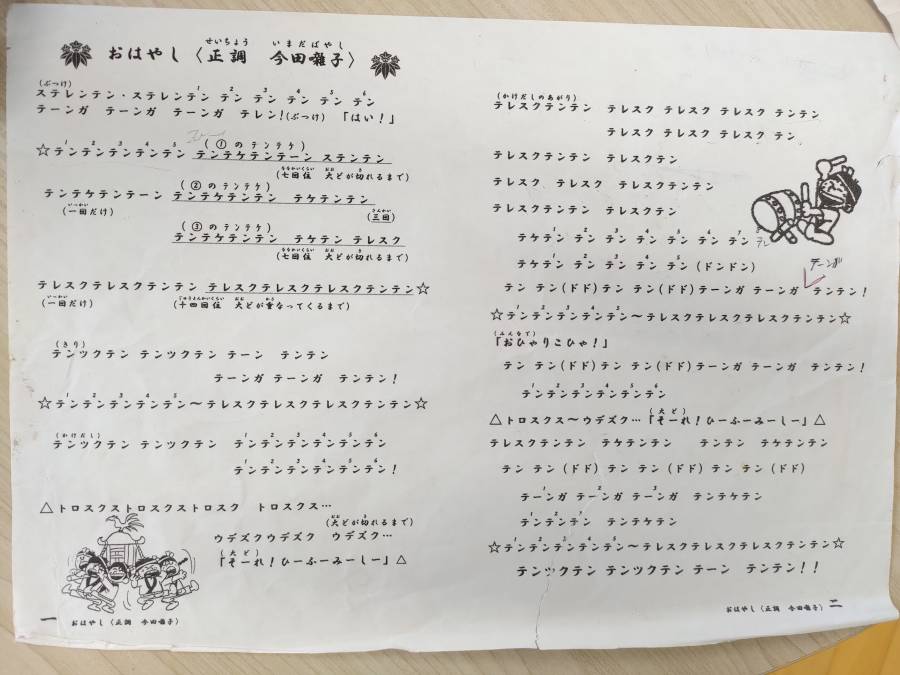 おはやし〈正調　今田囃子〉
せいちょう　いまだばやし
(ぶつけ)
ステレンテン・ステレンテン テン テン テン テン テン
1 2 3 4 5 6
テーンガ テーンガ テーンガ テレン!(ぶつけ) 「はい!」
☆テンテンテンテンテン テンテケテンテーン ステンテン
1 2 3 4 5
(①のテンテケ)
(七回位 大どが切れるまで)
ななかいくらい おお き
テンテケテンテーン テンテケテンテン テケテンテン
(②のテンテケ)
(一回だけ)
いっかい
(三回)
さんかい
(③のテンテケ)
テンテケテンテン テケテン テレスク
(七回位 大どが切れるまで)
ななかいくらい おお き
テレスクテレスクテンテン テレスクテレスクテレスクテンテン☆
(一回だけ) (十四回位 大どが重なってくるまで)
いっかい じゅうよんかいくらい おお かさ
(きり)
テンツクテン テンツクテン テーン テンテン
テーンガ テーンガ テンテン!
☆テンテンテンテンテン〜テレスクテレスクテレスクテンテン☆
1 2 3 4 5
(かけだし)
テンツクテン テンツクテン テンテンテンテンテンテン
1 2 3 4 5 6
テンテンテンテンテンテン!
1 2 3 4 5
△トロスクストロスクストロスク トロスクス…
(大どが切れるまで)
おお き
ウデズクウデズク ウデズク…
(大ど)
おお
「そーれ!ひーふーみーしー」△
一 おはやし〈正調 今田囃子〉
(かけだしのあがり)
テレスクテンテン テレスク テレスク テレスク テンテン
テレスク テレスク テレスク テン
テレスクテンテン テレスクテン
テレスク テレスク テレスクテンテン
テレスクテンテン テレスクテン
テケテン テン テン テン テン テン テン
1 2 3 4 5 6 7
テレ
テケテン テン テン テン テン (ドンドン)
1 2 3 4 5
テーンガ
テン テン(ドド) テン テン(ドド) テーンガ テーンガ テンテン!
☆テンテンテンテンテン〜テレスクテレスクテレスクテンテン☆
1 2 3 4 5
(みんなで)
「おひゃりこひゃ!」
テン テン(ドド) テン テン(ドド) テーンガ テーンガ テンテン!
テンテンテンテンテンテン
1 2 3 4 5 6
△トロスクス〜ウデズク…「そーれ!ひーふーみーしー」△
(大ど)
おお
テレスクテンテン テケテンテン テンテン テケテンテン
テン テン(ドド) テン テン(ドド) テン テン(ドド)
テーンガ テーンガ テーンガ テンテケテン
1 2 3
テンテンテン テンテケテン
☆テンテンテンテンテン〜テレスクテレスクテレスクテンテン☆
1 2 3 4 5
テンツクテン テンツクテン テーン テンテン!!
おはやし〈正調 今田囃子〉 二